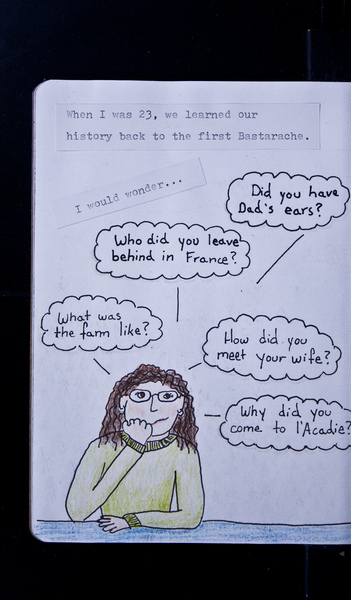 When I was 23, we learned our
history back to the first Bastarache.
I would wonder...
Did you have
Dad's ears?
Who did you leave
behind in France?
What was
the farm like?
How did you
meet your wife?
Why did you
come to l'Acadie?